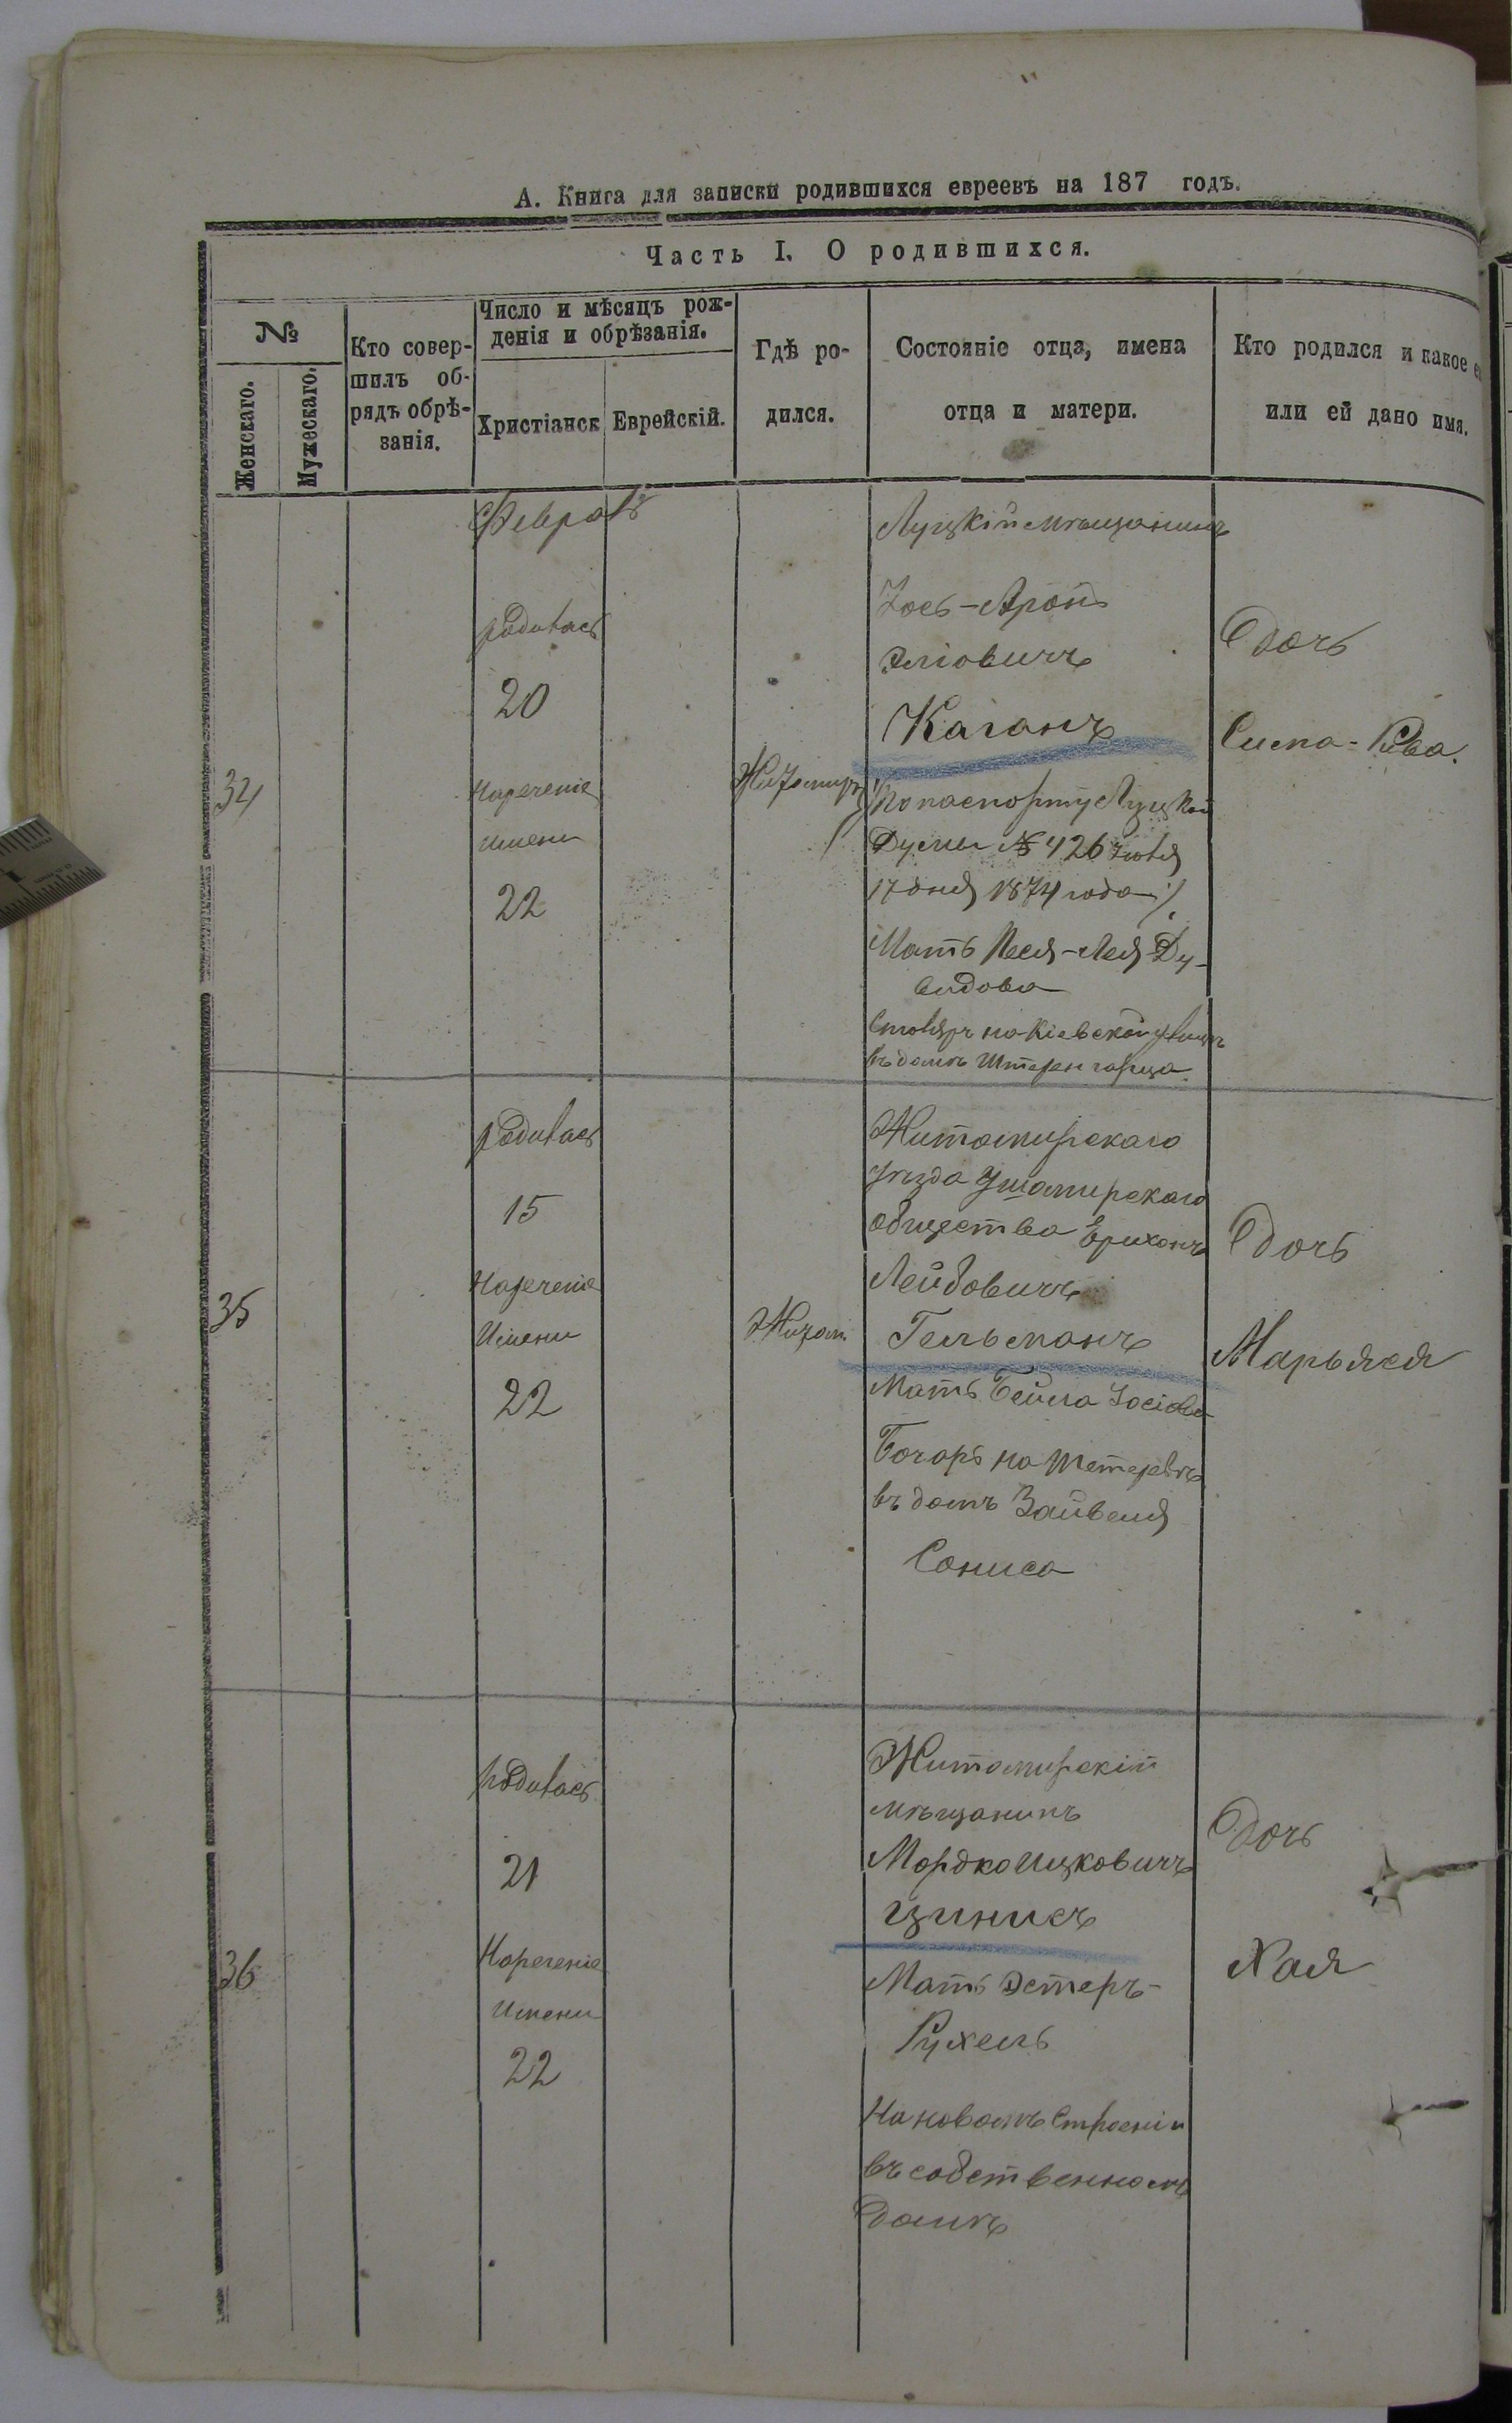 А. Книга для записки родившихся евреевъ на 187 годъ.
Часть I. О родившихся.
№
Женскаго.
Мужескаго.
Кто совер-
шилъ об-
рядъ обрѣ-
занія.
Число и мѣсяцъ рож-
денія и обрѣзанія.
Христіанск
Еврейскій.
Гдѣ ро-
дился.
Состояніе отца, имена
отца и матери.
Кто родился и какое е
или ей дано имя.
34
Февраль
родилась
20
Нареченіе
имени
22
Житомиръ
Луцкій мѣщанинъ
Іось-Аронъ
Эліовичъ
Каганъ
(По паспорту Луцкой
Думы № 426 іюля
17 дня 1874 года)
Мать Песя-Лея Ду-
видова
Столяръ на Кіевской улицѣ
въ домѣ Штеренгарца
Дочь
Сима-Рива.
35
родилась
15
Нареченіе
Имени
22
Житом.
Житомирскаго
уѣзда Ушомирскаго
общества Ерихонъ
Лейбовичъ
Гельманъ
Мать Бейла Іосіова
Бочаръ на Тетеревѣ
въ домѣ Зайвеля
Сониса
Дочь
Марьяся
36
родилась
21
Нареченіе
Имени
22
Житомирскій
мѣщанинъ
Мордко Ицковичъ
Циникъ
Мать Эстеръ-
Рухель
На новомъ Строеніи
въ собственномъ
домѣ
Дочь
Хая